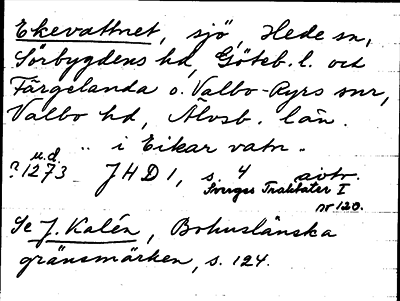 Ekevattnet, sjö, Hede sn,
Sörbygdens hd, Göteb. l. och
Färgelanda o. Valbo-Ryrs snr,
Valbo hd, Älvsb. län.
" i Eikar vatn.
u.d.
? 1273 JHD 1, s. 4 avtr.
Sveriges Traktater I
nr 120.
Se J. Kalén, Bohuslänska
gränsmärken, s. 124.